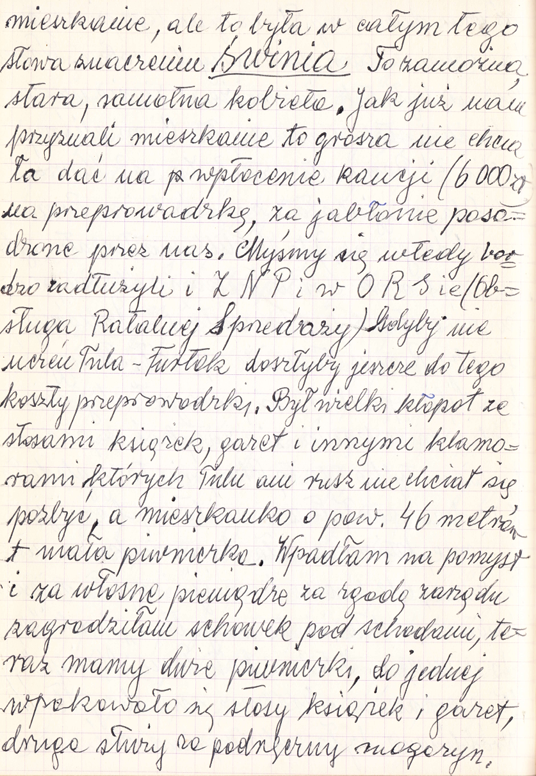 mieszkanie, ale to była w całym tego
słowa znaczeniu świnia. To zamożna,
stara, samotna kobieta. Jak już nam
przyznali mieszkanie to grosza nie chcia
ła dać na wpłacenie kaucji (6 000 zł
na przeprowadzkę, za jabłonie posa=
dzone przez nas. Myśmy się wtedy bar=
dzo zadłużyli i Z N P i w O R S ie (Ob=
sługa Ratalnej Sprzedaży) Gdyby nie
uczeń Tula - Furtok doszłyby jeszcze do tego
koszty przeprowadzki. Był wielki kłopot ze
stosami książek, gazet i innymi klamo=
rami których Tulu ani rusz nie chciał się
pozbyć, a mieszkanko o pow. 46 metrów
+ mała piwniczka. Wpadłam na pomysł
i za własne pieniądze za zgodą zarządu
zagrodziłam schowek pod schodami, te=
raz mamy dwie piwniczki, do jednej
wpakowało się stosy książek i gazet,
druga służy za podręczny magazyn.